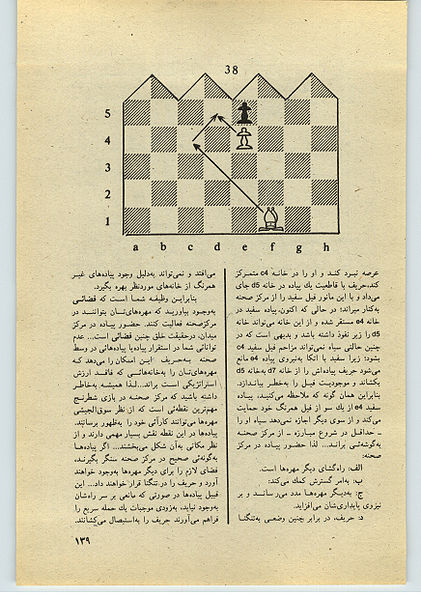 38
5
4
3
2
1
a b c d e f g h
عرصه نبرد کند و او را در خانه c4 متمرکز
کند، حریف با قاطعیت یك پیاده در خانه d5 جای
می‌داد و با این مانور فیل سفید را از مرکز صحنه
به‌کنار میراند؛ در حالی که اکنون، پیاده سفید در
خانه e4 مستقر شده و از این خانه می‌تواند خانه
d5 را زیر نفوذ داشته باشد و بدیهی است که در
چنین حالتی سیاه نمی‌تواند مزاحم فیل سفید c4
بشود؛ زیرا سفید با اتکا به‌نیروی پیاده e4 مانع
می‌شود حریف پیاده‌اش را از خانه d7 به‌خانه d5
بکشاند و موجودیت فیل را به‌خطر بیاندازد.
بنابراین همان گونه که ملاحظه می‌کنید، پیاده
سفید e4 از یك سو از فیل همرنگ خود حمایت
می‌کند و از سوی دیگر اجازه نمی‌دهد سیاه او را
ـ حداقل در شروع مبارزه ـ از مرکز صحنه
به‌گوشه‌ئی براند... لذا حضور پیاده در مرکز
صحنه:
الف: راه‌گشای دیگر مهره‌ها است.
ب: به‌امر گسترش کمك می‌کند:
ج: به‌دیگر مهره‌ها مدد می‌رساند و بر
نیروی پایداری‌شان می‌افزاید.
د: حریف، در برابر چنین وضعی به‌تنگنا
می‌افتد و نمی‌تواند به‌دلیل وجود پیاده‌های غیر
همرنگ از خانه‌های موردنظر بهره بگیرد.
بنابراین وظیفه شما است که فضائی
به‌وجود بیاورید که مهره‌های‌تان بتوانند در
مرکز صحنه فعالیت کنند. حضور پیاده در مرکز
میدان، درحقیقت خلق چنین فضائی است... عدم
توانائی شما در استقرار پیاده یا پیاده‌هائی در وسط
صحنه به‌حریف این امکان را می‌دهد که
مهره‌های‌تان را به‌خانه‌هائی که فاقد ارزش
استراتژیکی است براند... لذا همیشه به‌خاطر
داشته باشید که مرکز صحنه در بازی شطرنج
مهم‌ترین نقطه‌ئی است که از نظر سوق‌الجیشی
مهره‌ها می‌توانند کارآئی خود را به‌ظهور برسانند.
پیاده‌ها در این نقطه نقش بسیار مهمی دارند و از
نظر مکانی به‌آن شکل می‌بخشند... اگر پیاده‌ها
به‌گونه‌ئی صحیح در مرکز صحنه سنگر بگیرند،
فضای لازم را برای دیگر مهره‌ها به‌وجود خواهند
آورد و حریف را در تنگنا قرار خواهند داد... این
قبیل پیاده‌ها در صورتی که مانعی بر سر راه‌شان
به‌وجود نیاید، به‌زودی موجبات یك حمله سریع را
فراهم می‌آورند حریف را به‌استیصال می‌کشانند.
۱۳۹